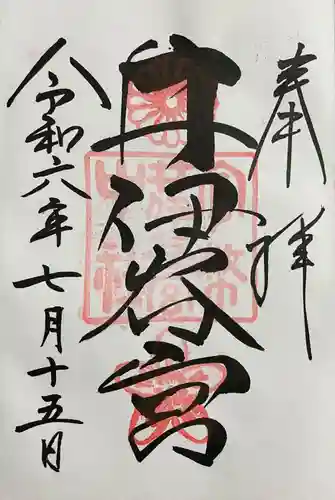 奉拝
井伊谷宮
令和六年七月十五日